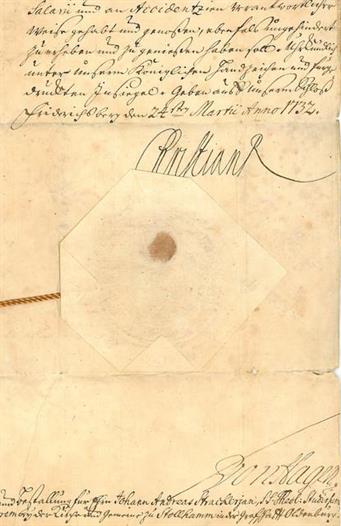 Salarii und an Accidentzien verantwortlicher
Weise gehabt und genoßen, ebenfals ungehindert
zuerheben und zu genießen haben soll. Uhrkundlich
unter Unserm Königlichen Handzeichen und fürge-
druckten Insiegel. Geben auf Unserm Schloß
Friderichsberg den 24sten Martii Anno 1732.
Christian R
von Hagen
und Bestallung für Johann Andreas Strackerjan, SS. Theol. Studiosum
der Kirche und Gemeine zu Stollhamm in der Graffsch. Oldenburg.